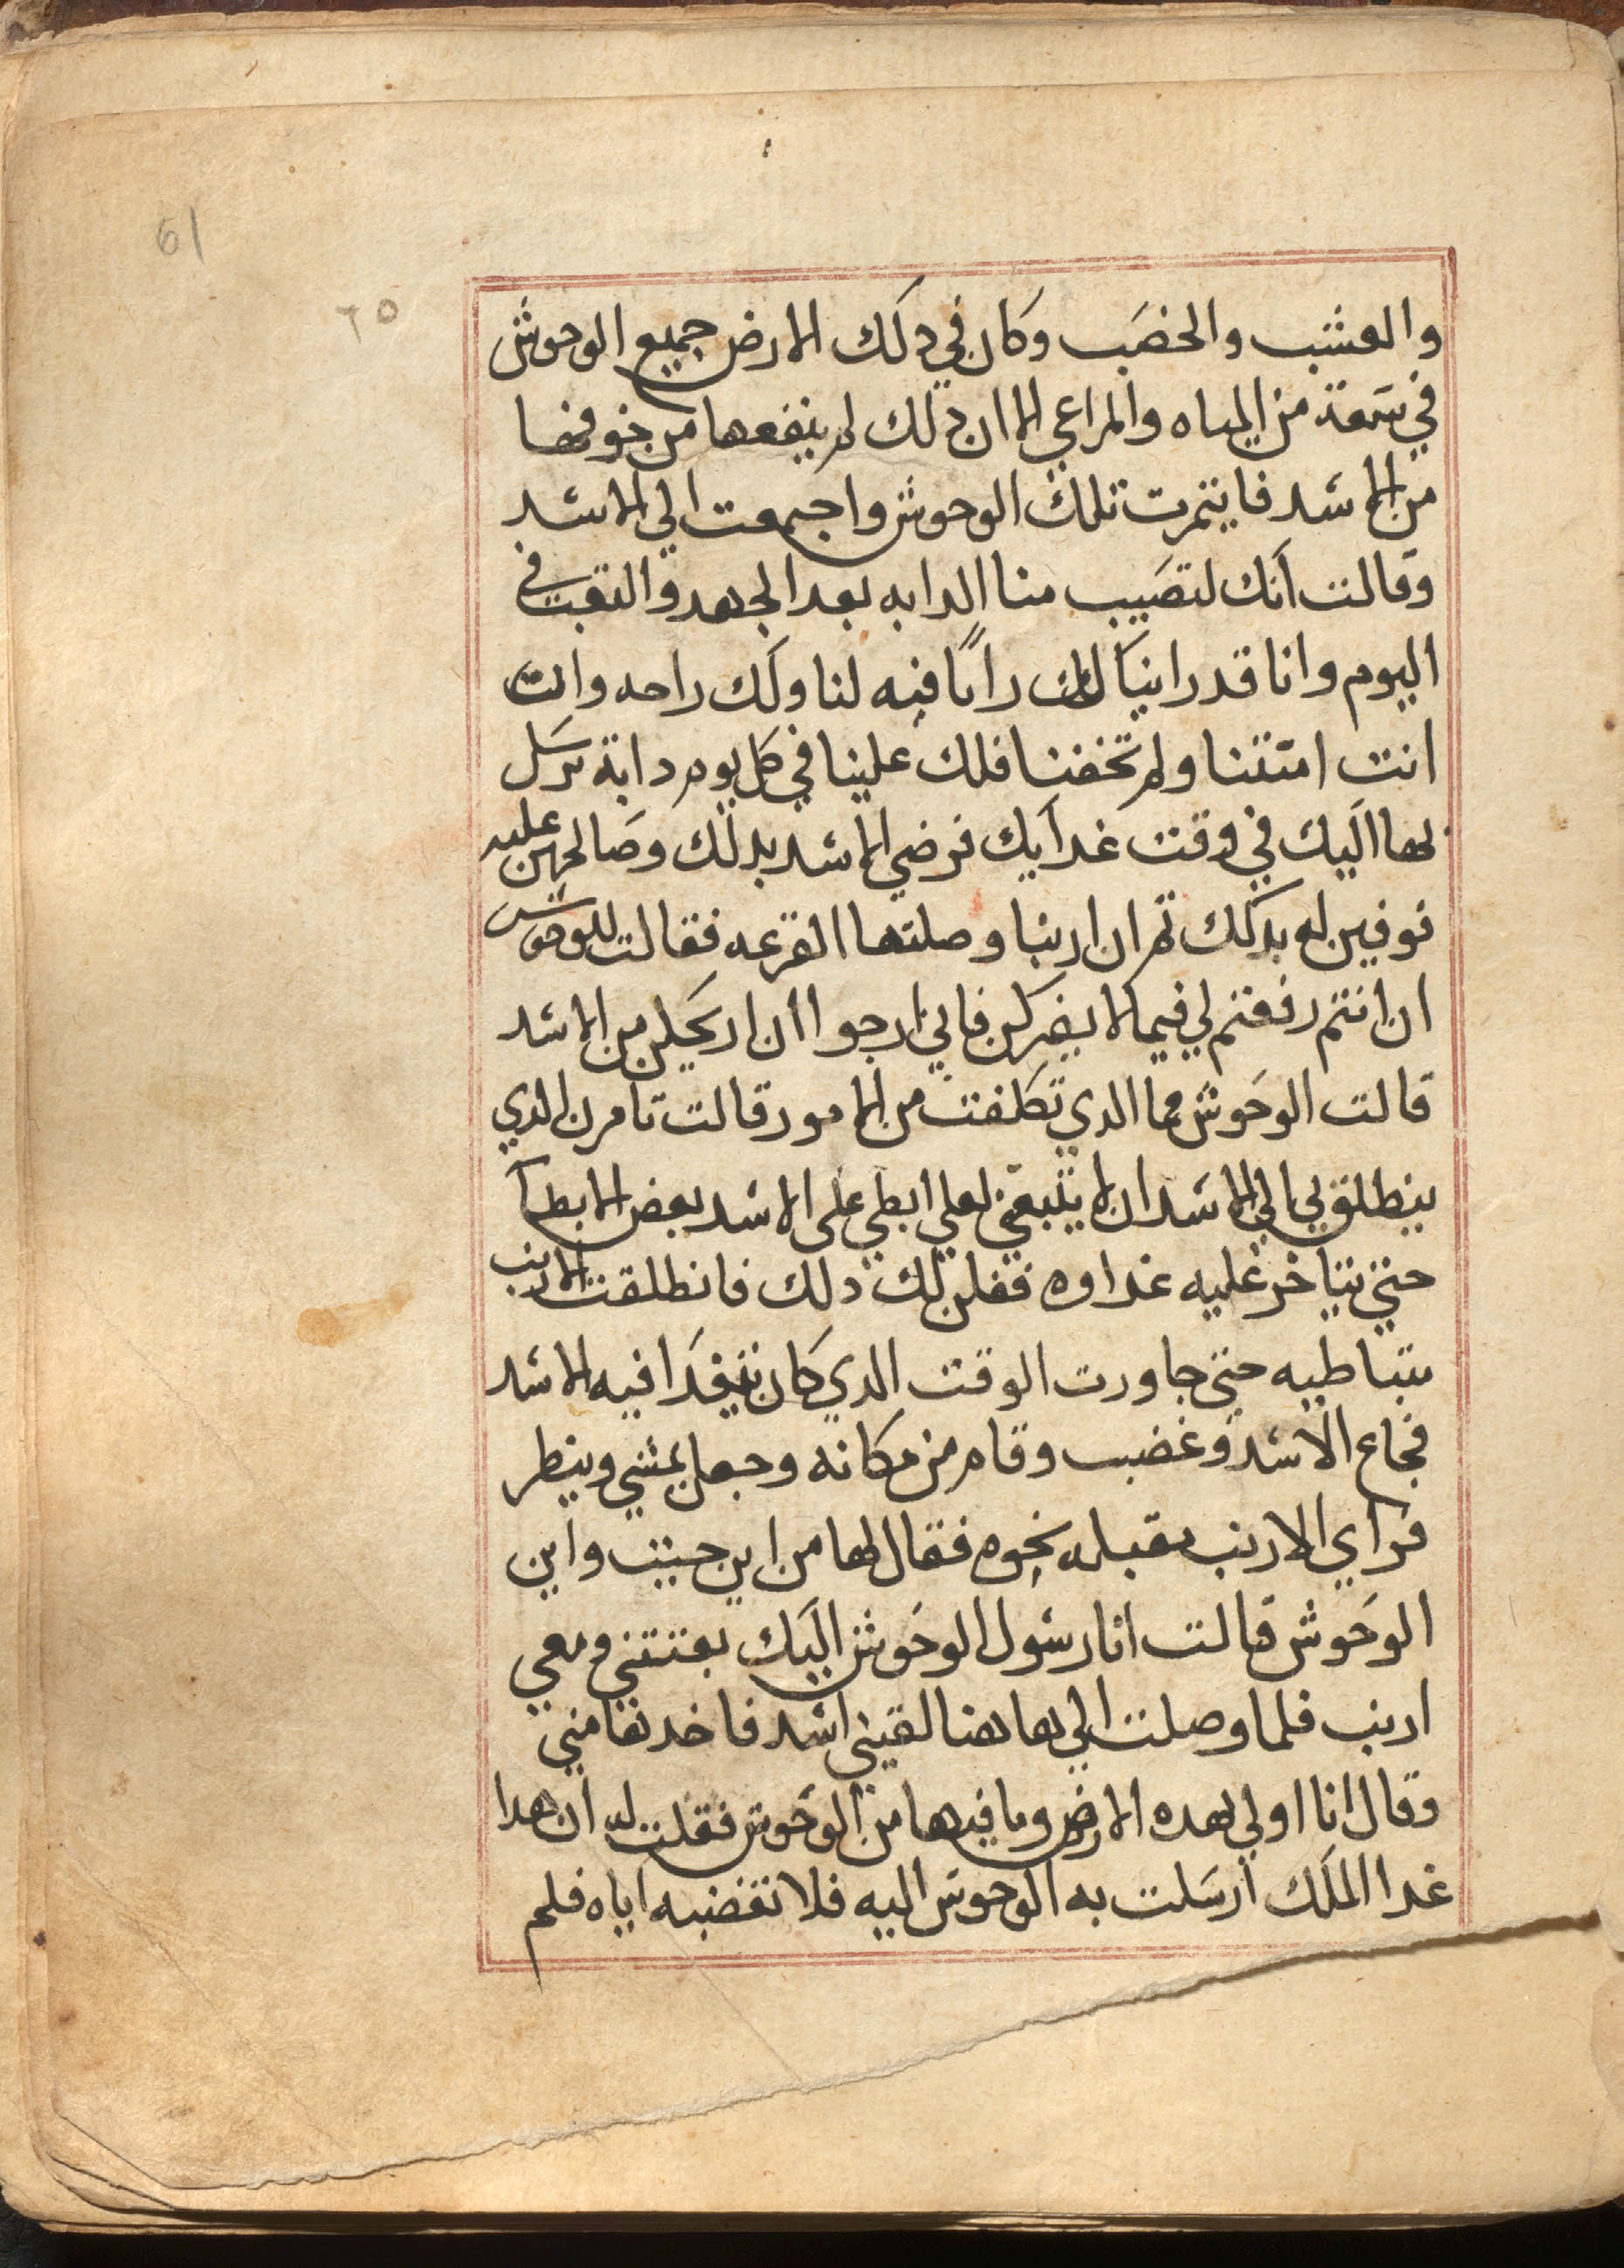 61
٦٥
والعشب والخصب وكان في دلك الارض جميع الوحوش
في سعة من المياه والمراعي الا ان دلك لم ينفعها من خوفها
من الاسد فايتمرت تلك الوحوش واجتمعت الي الاسد
وقالت انك لتصيب منا الدابه بعد الجهد والتعب في
اليوم وانا قد راينا لك رايًا فيه لنا ولك راحه وانت
انت امنتنا ولم تخفنا فلك علينا في كل يوم دابة نرسل
بها اليك في وقت غدايك فرضي الاسد بدلك وصالحهن عليه
فوفين له بدلك ثم ان ارنبا وصلتها القرعه فقالت للوحوش
ان انتم رفقتم لي فيما لا يضركن فاني ارجوا أن اريحكن من الاسد
قالت الوحوش فما الدي تكلفت من الامور قالت تامرن الدي
ينطلق بي الي الاسد ان لا يتبعني لعلي ابطي على الاسد بعض الابطآ
حتي يتاخر عليه غداوه فقلن لك دلك فانطلقت الارنب
متباطيه حتي جاورت الوقت الدي كان يتغدا فيه الاسد
فجاع الاسد وغضب وقام من مكانه وجعل يمشي وينظر
فراي الارنب مقبله نحوه فقال لها من اين جيت واين
الوحوش قالت انا رسول الوحوش اليك بعتتني ومعي
ارنب فلما وصلت الي هاهنا لقيني اسد فاخدها مني
وقال انا اولي بهده الارض وما فيها من الوحوش فقلت له ان هدا
غدا الملك ارسلت به الوحوش اليه فلا تغضبه اياه فلم